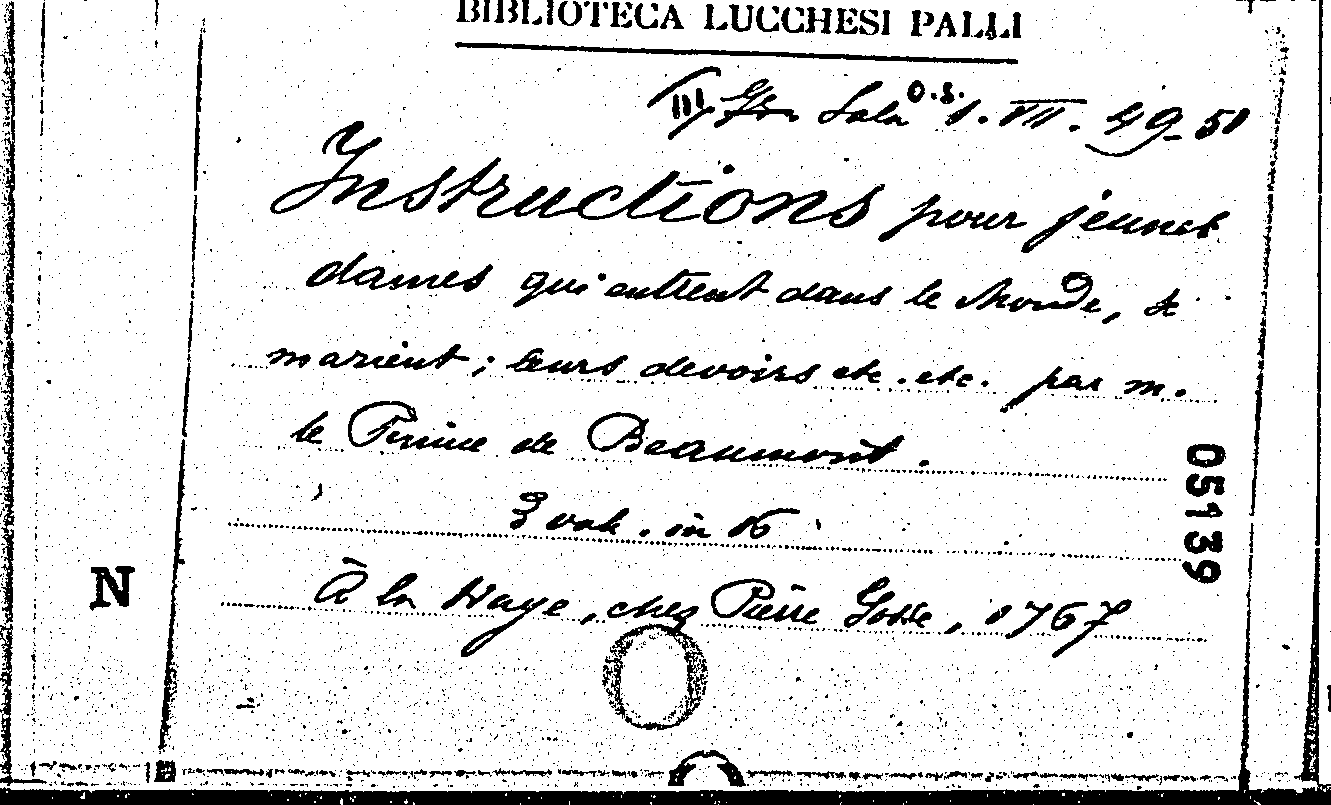 BIBLIOTECA LUCCHESI PALLI
III Gr. Sala O.S. 1. VII. 49-51
Instructions pour jeunes
dames qui entrent dans le Monde, se
marient ; leurs devoirs etc. etc. par m.
le Prince de Beaumont.
3 vol. in 16
À la Haye, chez Pierre Gosse, 1767
05139
N